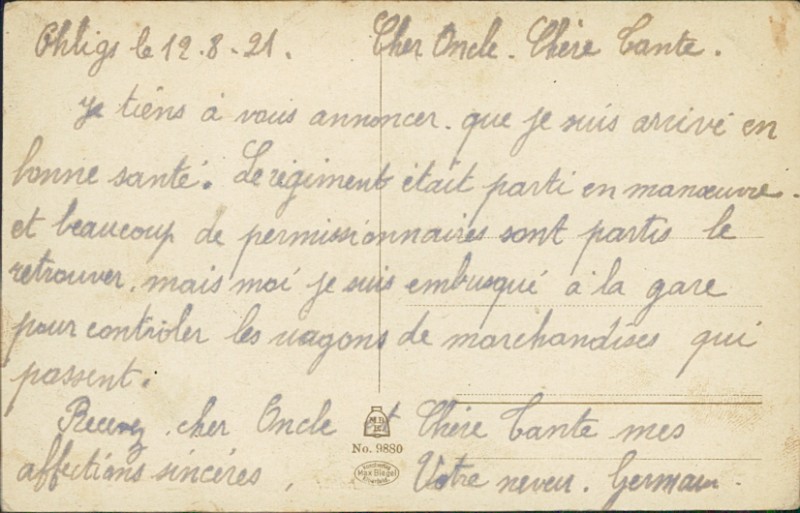 Ohligs le 12-8-21. Cher Oncle. Chère Tante.
Je tiens à vous annoncer. que je suis arrivé en
bonne santé. Le régiment était parti en manœuvre.
et beaucoup de permissionnaires sont partis le
retrouver. mais moi je suis embusqué à la gare
pour contrôler les wagons de marchandises qui
passent.
Recevez cher Oncle et Chère Tante mes
No. 9880
affections sincères, Votre neveu. Germain.
Max Biegel